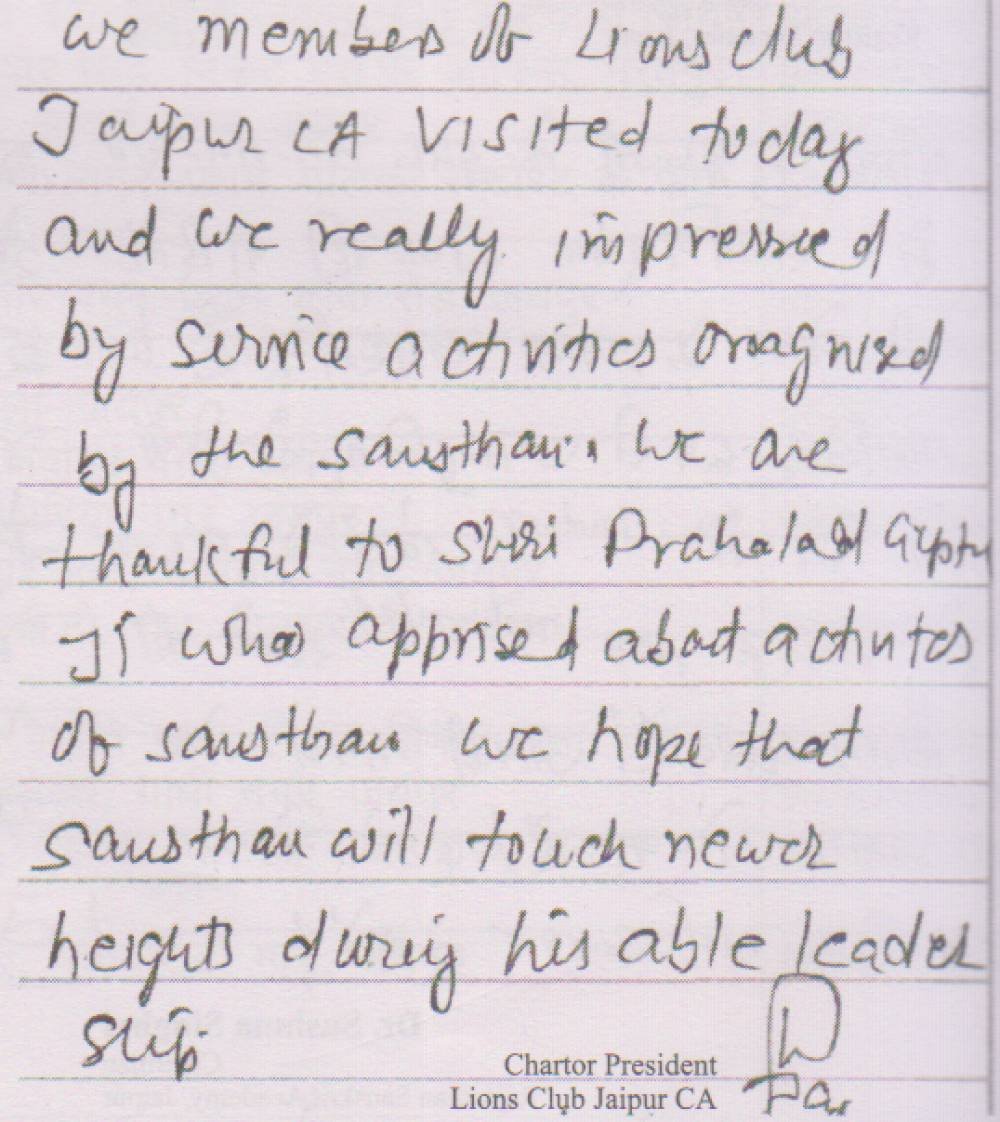 we members of Lions club
Jaipur CA visited today
and we really impressed
by service activities oragnized
by the sansthan. We are
thankful to Shri Prahalad Gupta
Ji who apprised about activites
of sansthan we hope that
sansthan will touch newer
heights during his able leader
ship
Chartor President
Lions Club Jaipur CA